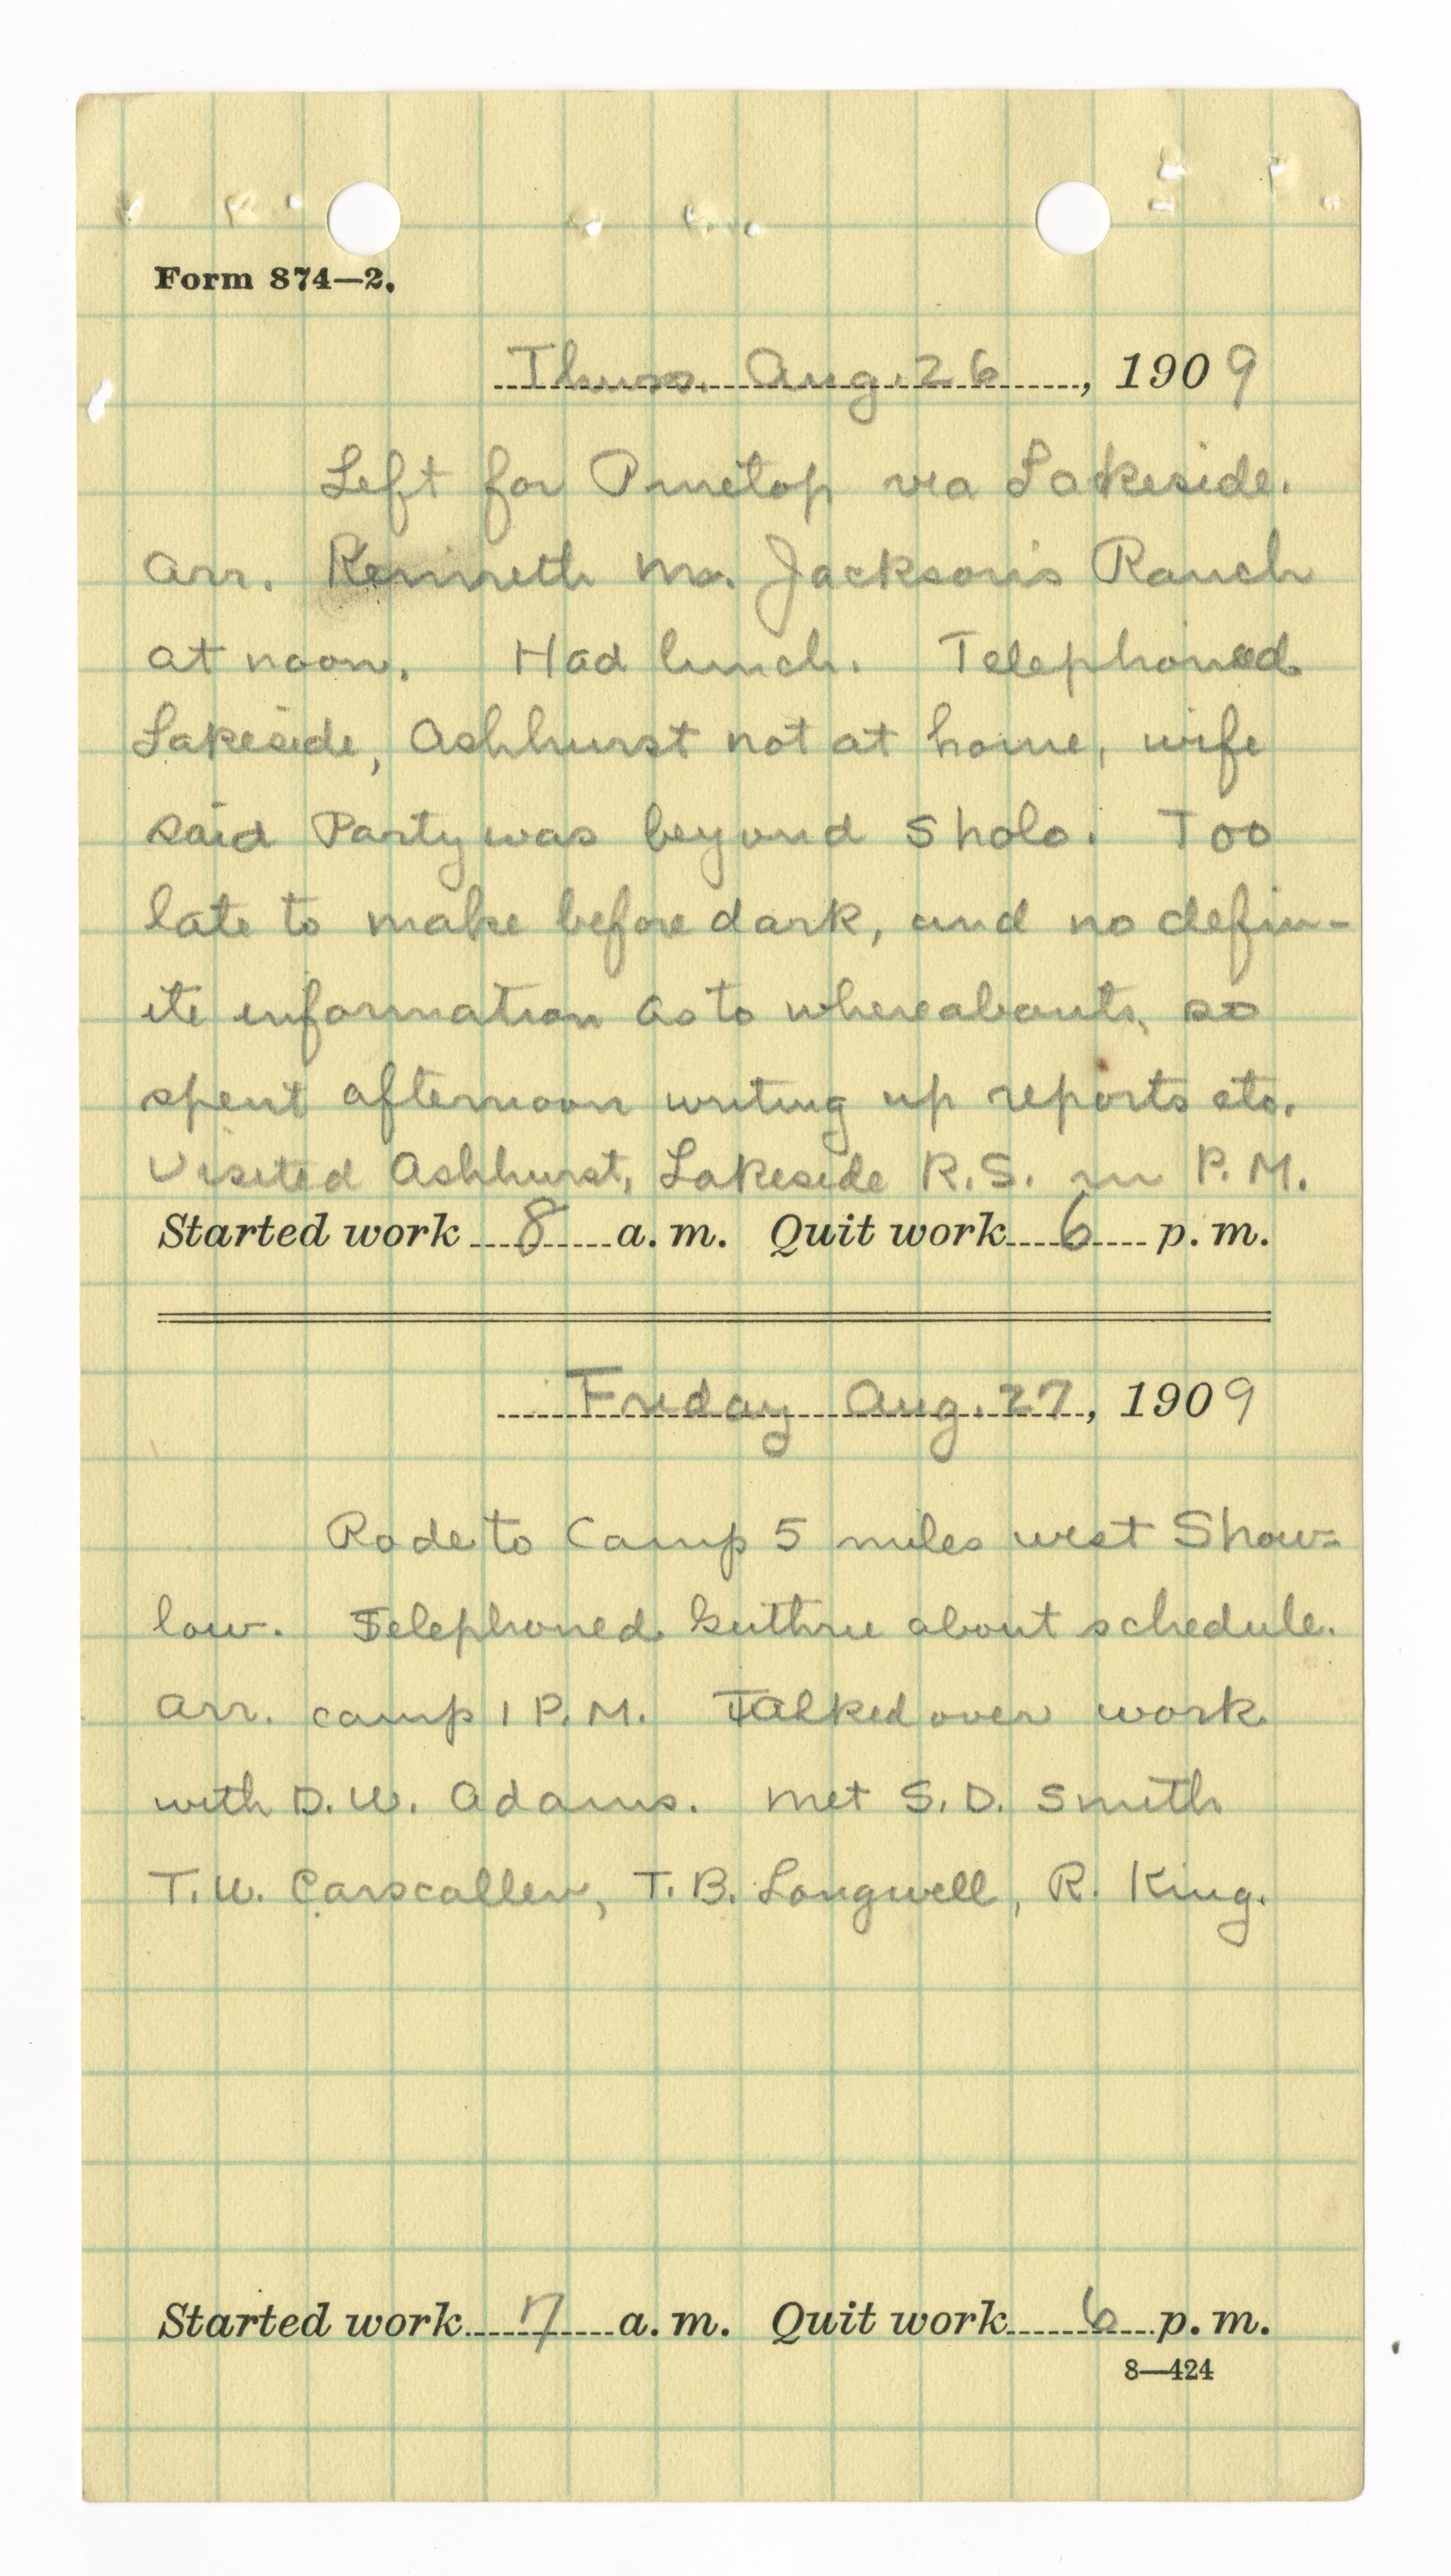 Form 874—2.
Thurs. Aug. 26, 1909
Left for Pinetop via Lakeside.
Arr. Kenneth Mc. Jackson's Ranch
at noon. Had lunch. Telephoned
Lakeside, Ashhurst not at home, wife
said Party was beyond Sholo. Too
late to make before dark, and no defin-
ite information as to whereabouts, so
spent afternoon writing up reports etc.
Visited Ashhurst, Lakeside R.S. in P.M.
Started work 8 a. m. Quit work 6 p. m.
Friday Aug. 27, 1909
Rode to Camp 5 miles west Show-
low. Telephoned Guthrie about schedule.
Arr. camp 1 P.M. Talked over work
with D.W. Adams. Met S.D. Smith
T.W. Carscallen, T.B. Longwell, R. King.
Started work 7 a. m. Quit work 6 p. m.
8—424